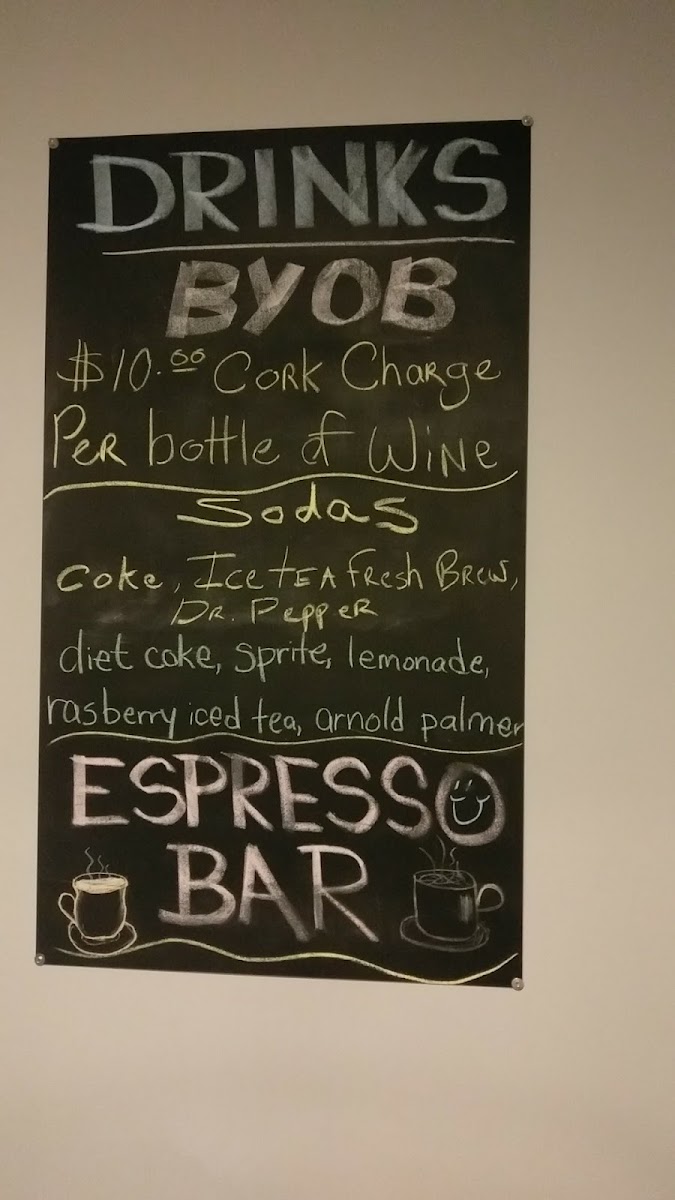 DRINKS
BYOB
$10.00 CORK CHARGE
PER bottle of WINE
Sodas
Coke, Ice TEA FResh BRew,
DR. PeppeR
diet coke, sprite, lemonade,
rasberry iced tea, arnold palmer
ESPRESSO
BAR